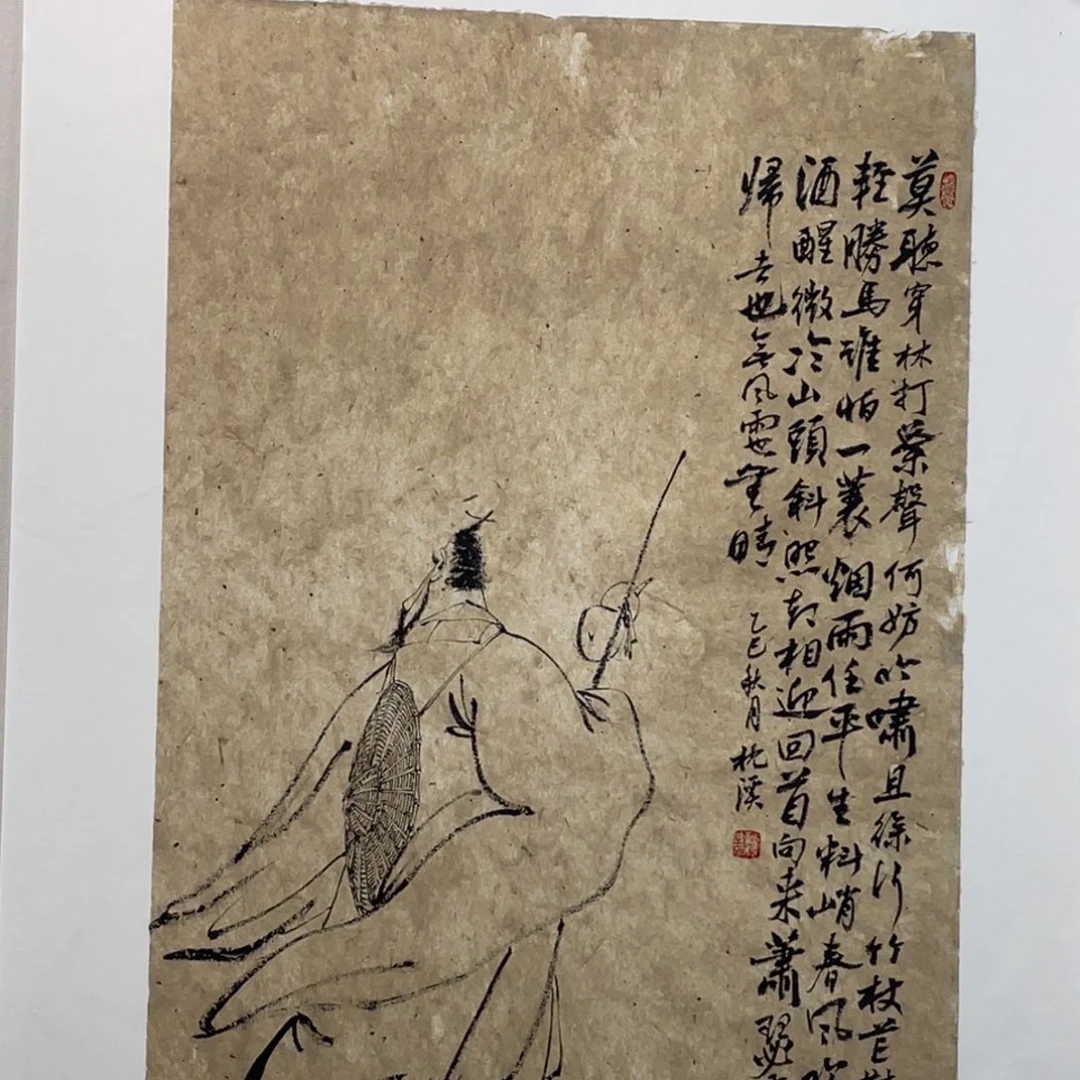 莫聽穿林打葉聲何妨吟嘯且徐行竹杖芒鞋
輕勝馬誰怕一蓑烟雨任平生料峭春風吹
酒醒微冷山頭斜照却相迎回首向来蕭瑟
歸去也無風雨也無晴
乙巳秋月枕溪